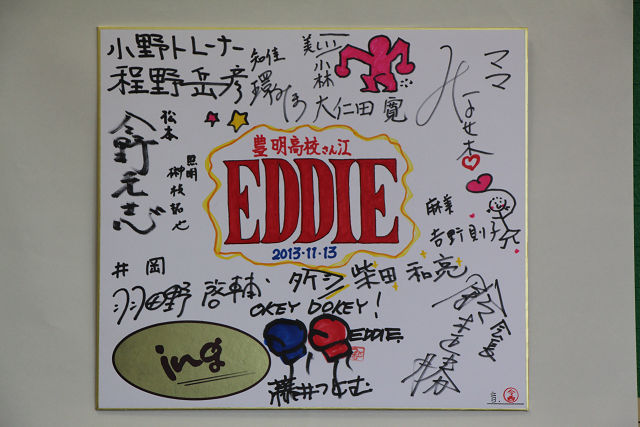 小野トレーナー
程野岳彦
知佳
美い
小林
大仁田 寛
ママ
松本
今野元志
照明
豊明高校さん江
EDDIE
2013・11・13
麻美
吉野則子
井岡
羽田野 啓輔
タケシ
柴田 和亮
OKEY DOKEY!
EDDIE.
ing
藤井つとむ
会長